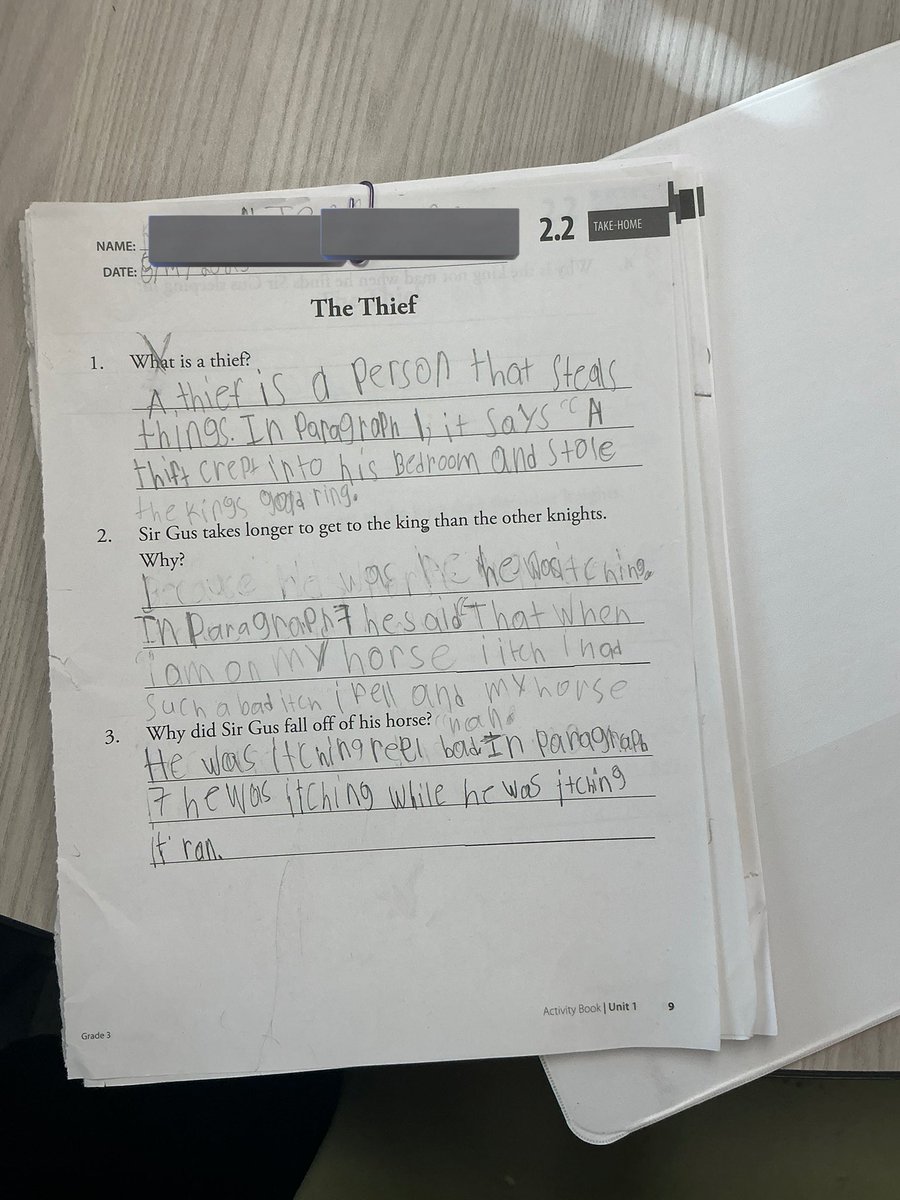 2.2 TAKE-HOME
NAME:
DATE:
The Thief
1. What is a thief?
A thief is a person that steals
things. In Paragraph 1, it says "A
thift crept into his Bedroom and stole
the kings gold ring.
2. Sir Gus takes longer to get to the king than the other knights.
Why?
because he was he he was itching.
In Paragraph 7 he said "That when
i am on my horse i itch I had
such a bad itch i fell and my horse
ran.
3. Why did Sir Gus fall off of his horse?
He was itching reel bad In paragraph
7 he was itching while he was itching
it ran.
Activity Book | Unit 1 9
Grade 3